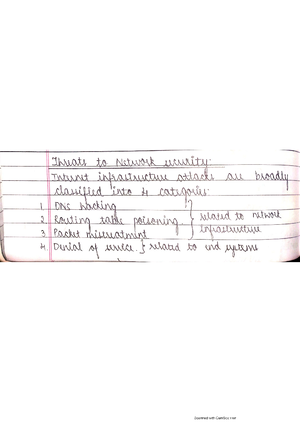 Threats to Network security.
Internet infrastructure attacks are broadly
classified into 4 categories.
1. DNS hacking
2. Routing table poisoning
related to network
infrastructure
3. Packet mistreatment
4. Denial of service. } related to end systems
Scanned with CamScanner